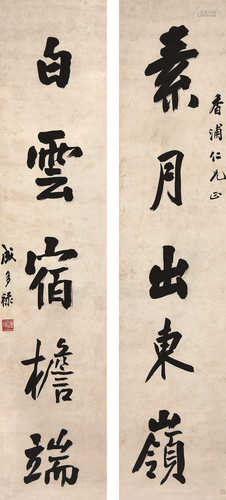 香浦仁兄正
素月出東嶺
白雲宿檐端
成多祿